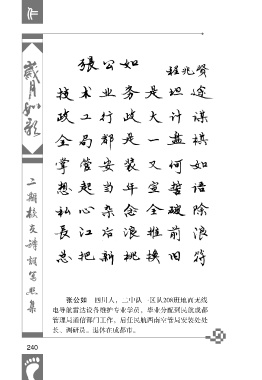 岁月如歌
二期校友诗词写照集
张公如
程兆贤
技术业务是坦途
政工行政大计谋
全局都是一盘棋
掌管安装又何如
想起当年宣誓语
私心杂念全破除
长江后浪推前浪
总把新桃换旧符
张公如 四川人，二中队一区队208班地面无线
电导航雷达设备维护专业学员。毕业分配到民航成都
管理局通信部门工作。后任民航西南空管局安装处处
长、调研员。退休在成都市。
240